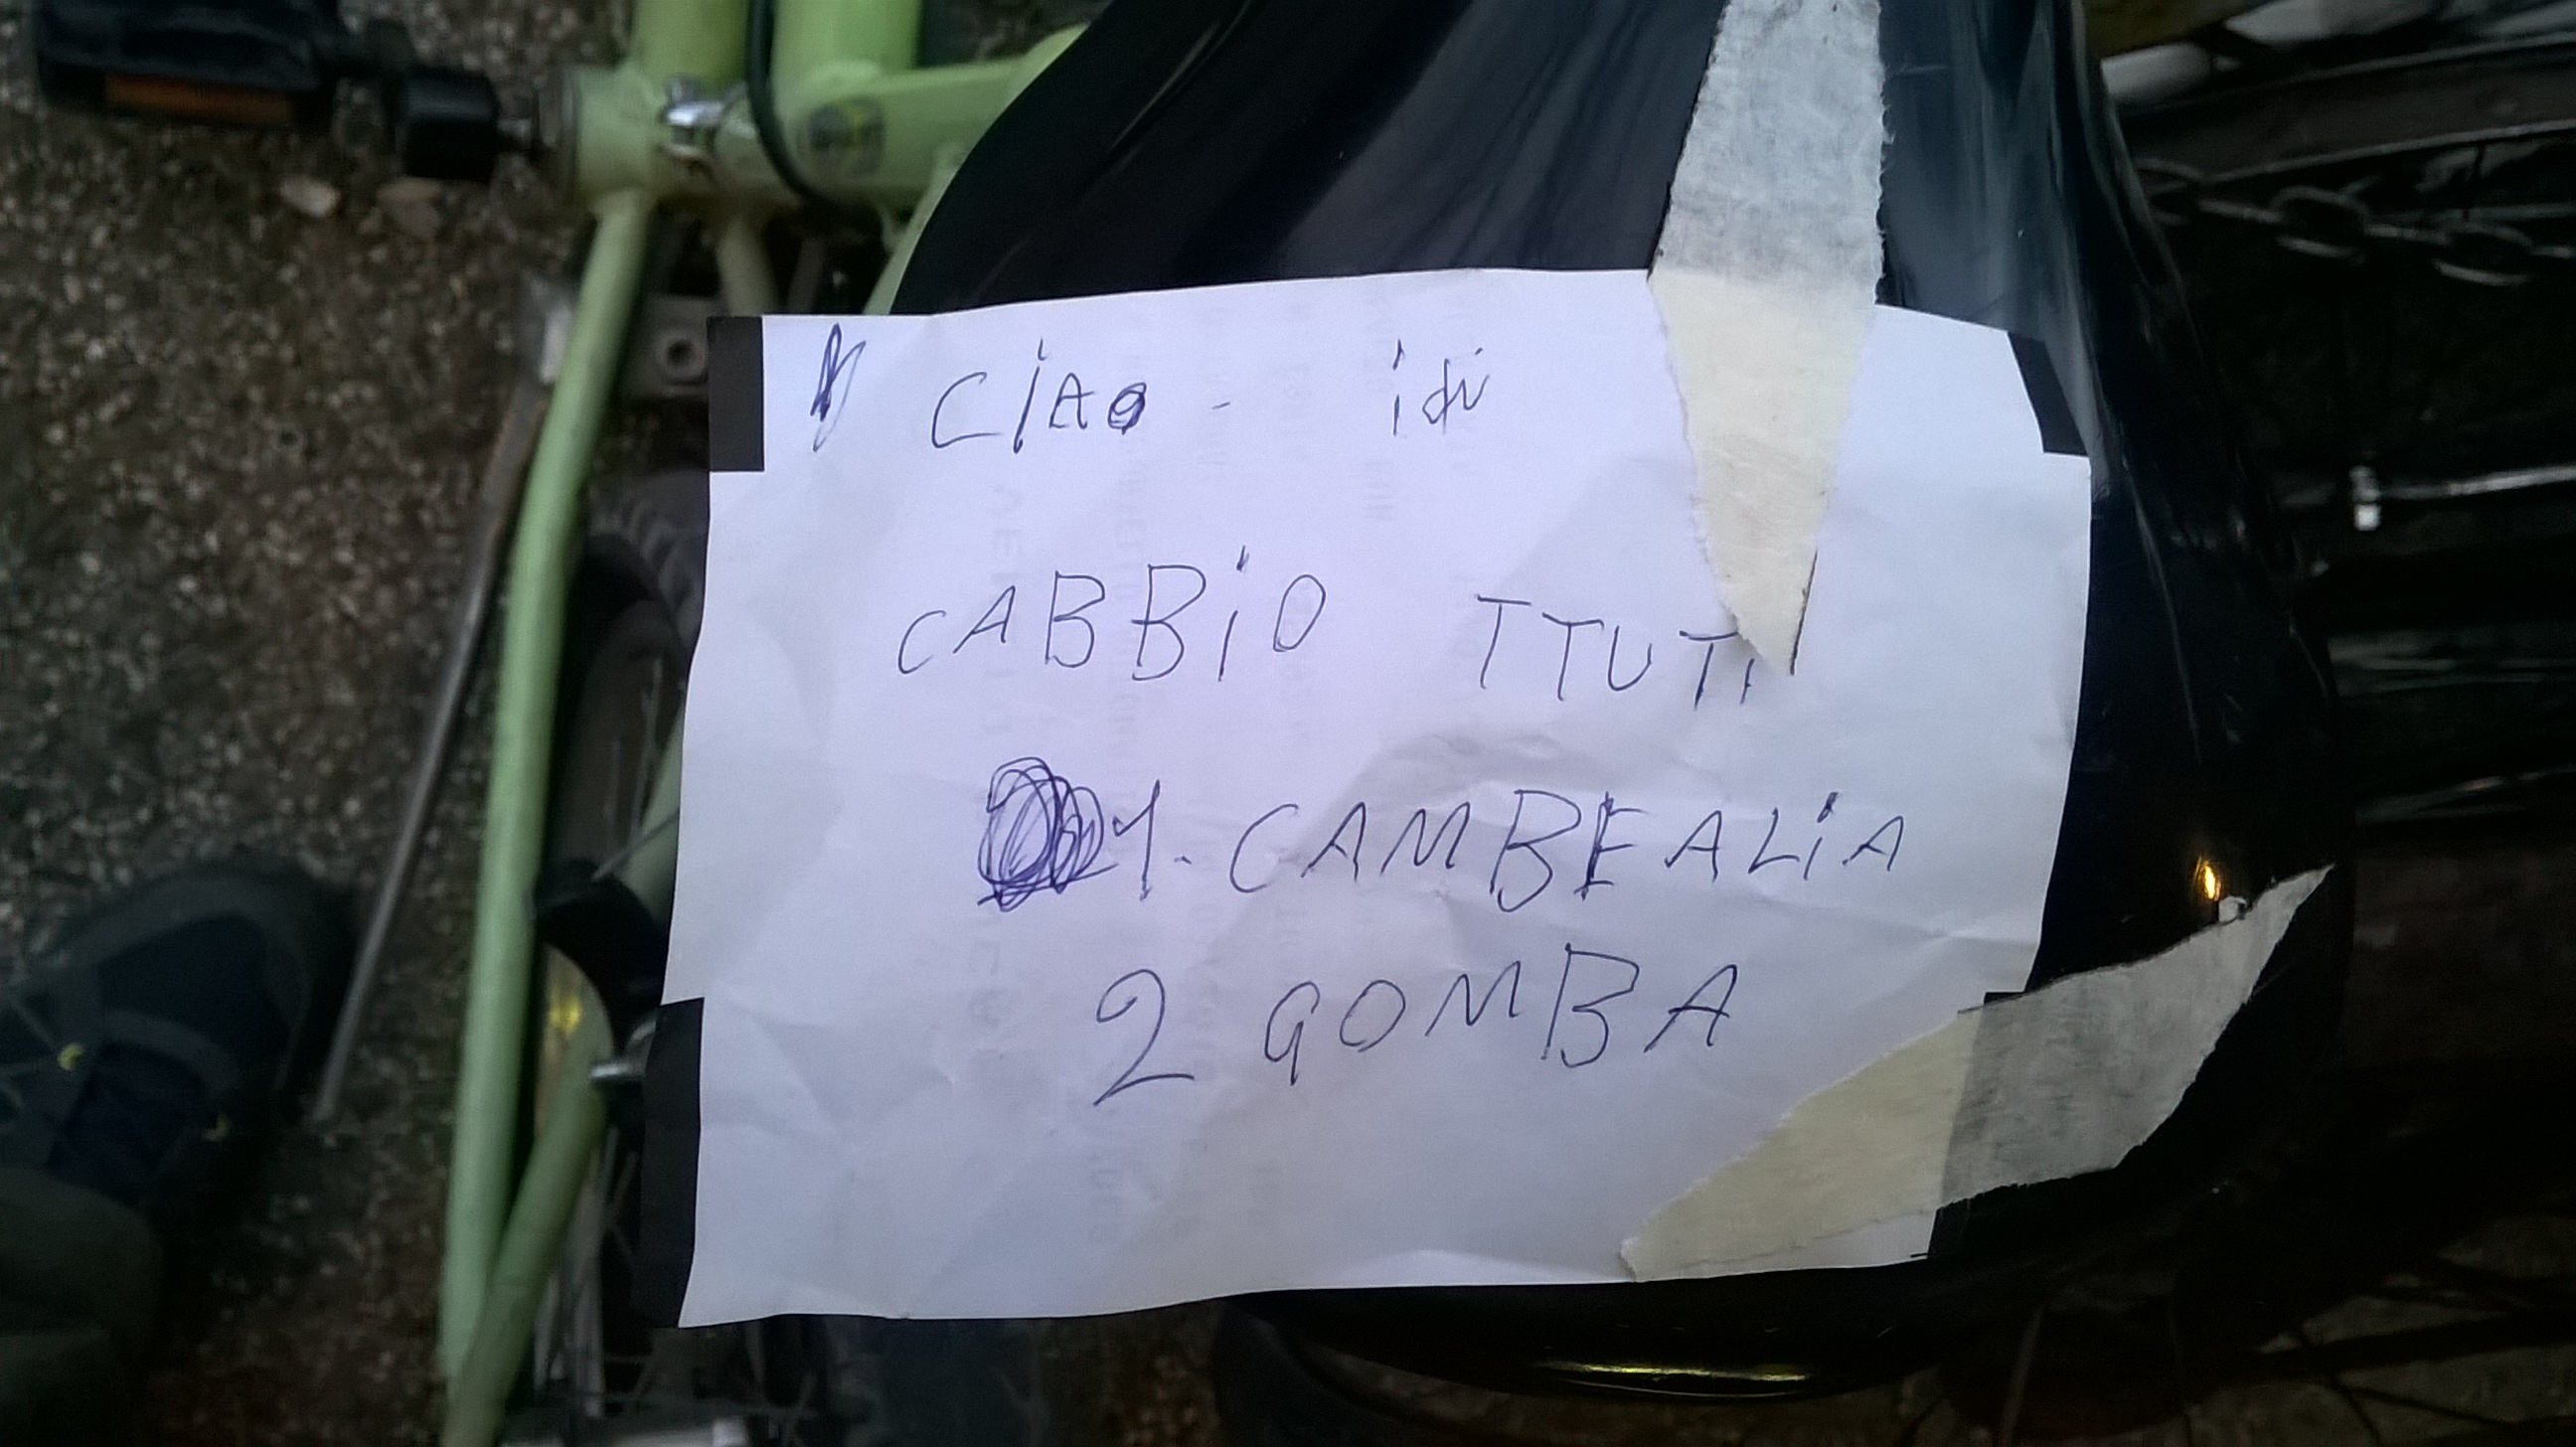 CiAo - idi
CABBiO TTUTi
1. CAMBEALiA
2 GOMBA